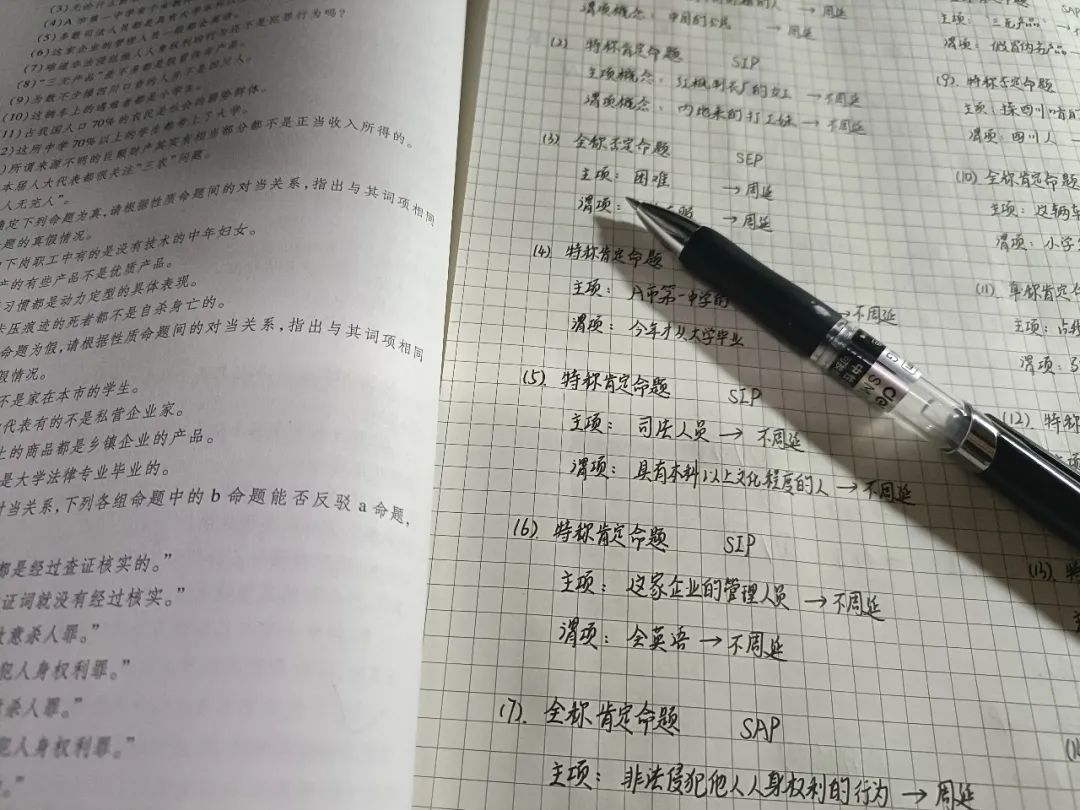 (4) A市第一中学有
(5) 多数司法人员都是具有大学
(6) 这家企业的管理人员一般都会英语。
(7) 难道非法侵犯他人人身权利的行为还不是犯罪行为吗?
(8) “三无产品”差不多都是假冒伪劣产品。
(9) 为数不少操四川口音的人并不是四川人。
(10) 这辆车上的遇难者都是小学生。
(11) 占我国人口70%的农民是社会的弱势群体。
这所中学70%以上的学生都考上了大学。
所谓来源不明的巨额财产其实有相当部分都不是正当收入所得的。
本届人大代表都很关注“三农”问题。
人无完人”。
确定下列命题为真,请根据性质命题间的对当关系,指出与其词项相同
题的真假情况。
下岗职工中有的是没有技术的中年妇女。
的有些产品不是优质产品。
习惯都是动力定型的具体表现。
压痕迹的死者都不是自杀身亡的。
命题为假,请根据性质命题间的对当关系,指出与其词项相同
假情况。
不是家在本市的学生。
代表有的不是私营企业家。
的商品都是乡镇企业的产品。
是大学法律专业毕业的。
对当关系,下列各组命题中的b命题能否反驳a命题,
都是经过查证核实的。”
证词就没有经过核实。”
故意杀人罪。”
犯人身权利罪。”
杀人罪。”
犯人身权利罪。”
的人 → 周延
谓项概念: 中国的公民 → 周延
(2) 特称肯定命题 SIP
主项概念: 红枫制衣厂的女工 → 不周延
谓项概念: 内地来的打工妹 → 不周延
(3) 全称否定命题 SEP
主项: 困难 → 周延
谓项: → 周延
(4) 特称肯定命题
主项: A市第一中学的 → 不周延
谓项: 今年才从大学毕业
(5). 特称肯定命题 SIP
主项: 司法人员 → 不周延
谓项: 具有本科以上文化程度的人 → 不周延
(6). 特称肯定命题 SIP
主项: 这家企业的管理人员 → 不周延
谓项: 会英语 → 不周延
(7). 全称肯定命题 SAP
主项: 非法侵犯他人人身权利的行为 → 周延
主项: 三无产品
谓项: 假冒伪劣产品
(9). 特称否定命题
主项: 操四川口音
谓项: 四川人
(10) 全称肯定命题
主项: 这辆车
谓项: 小学
(11). 单称肯定
主项: 占我
谓项:
(12) 特称
(13). 特